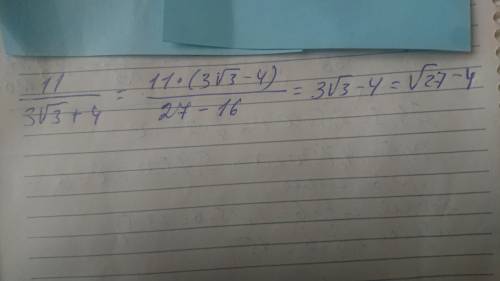 11/(3√3+4) = 11·(3√3-4)/(27-16) = 3√3-4 = √27-4